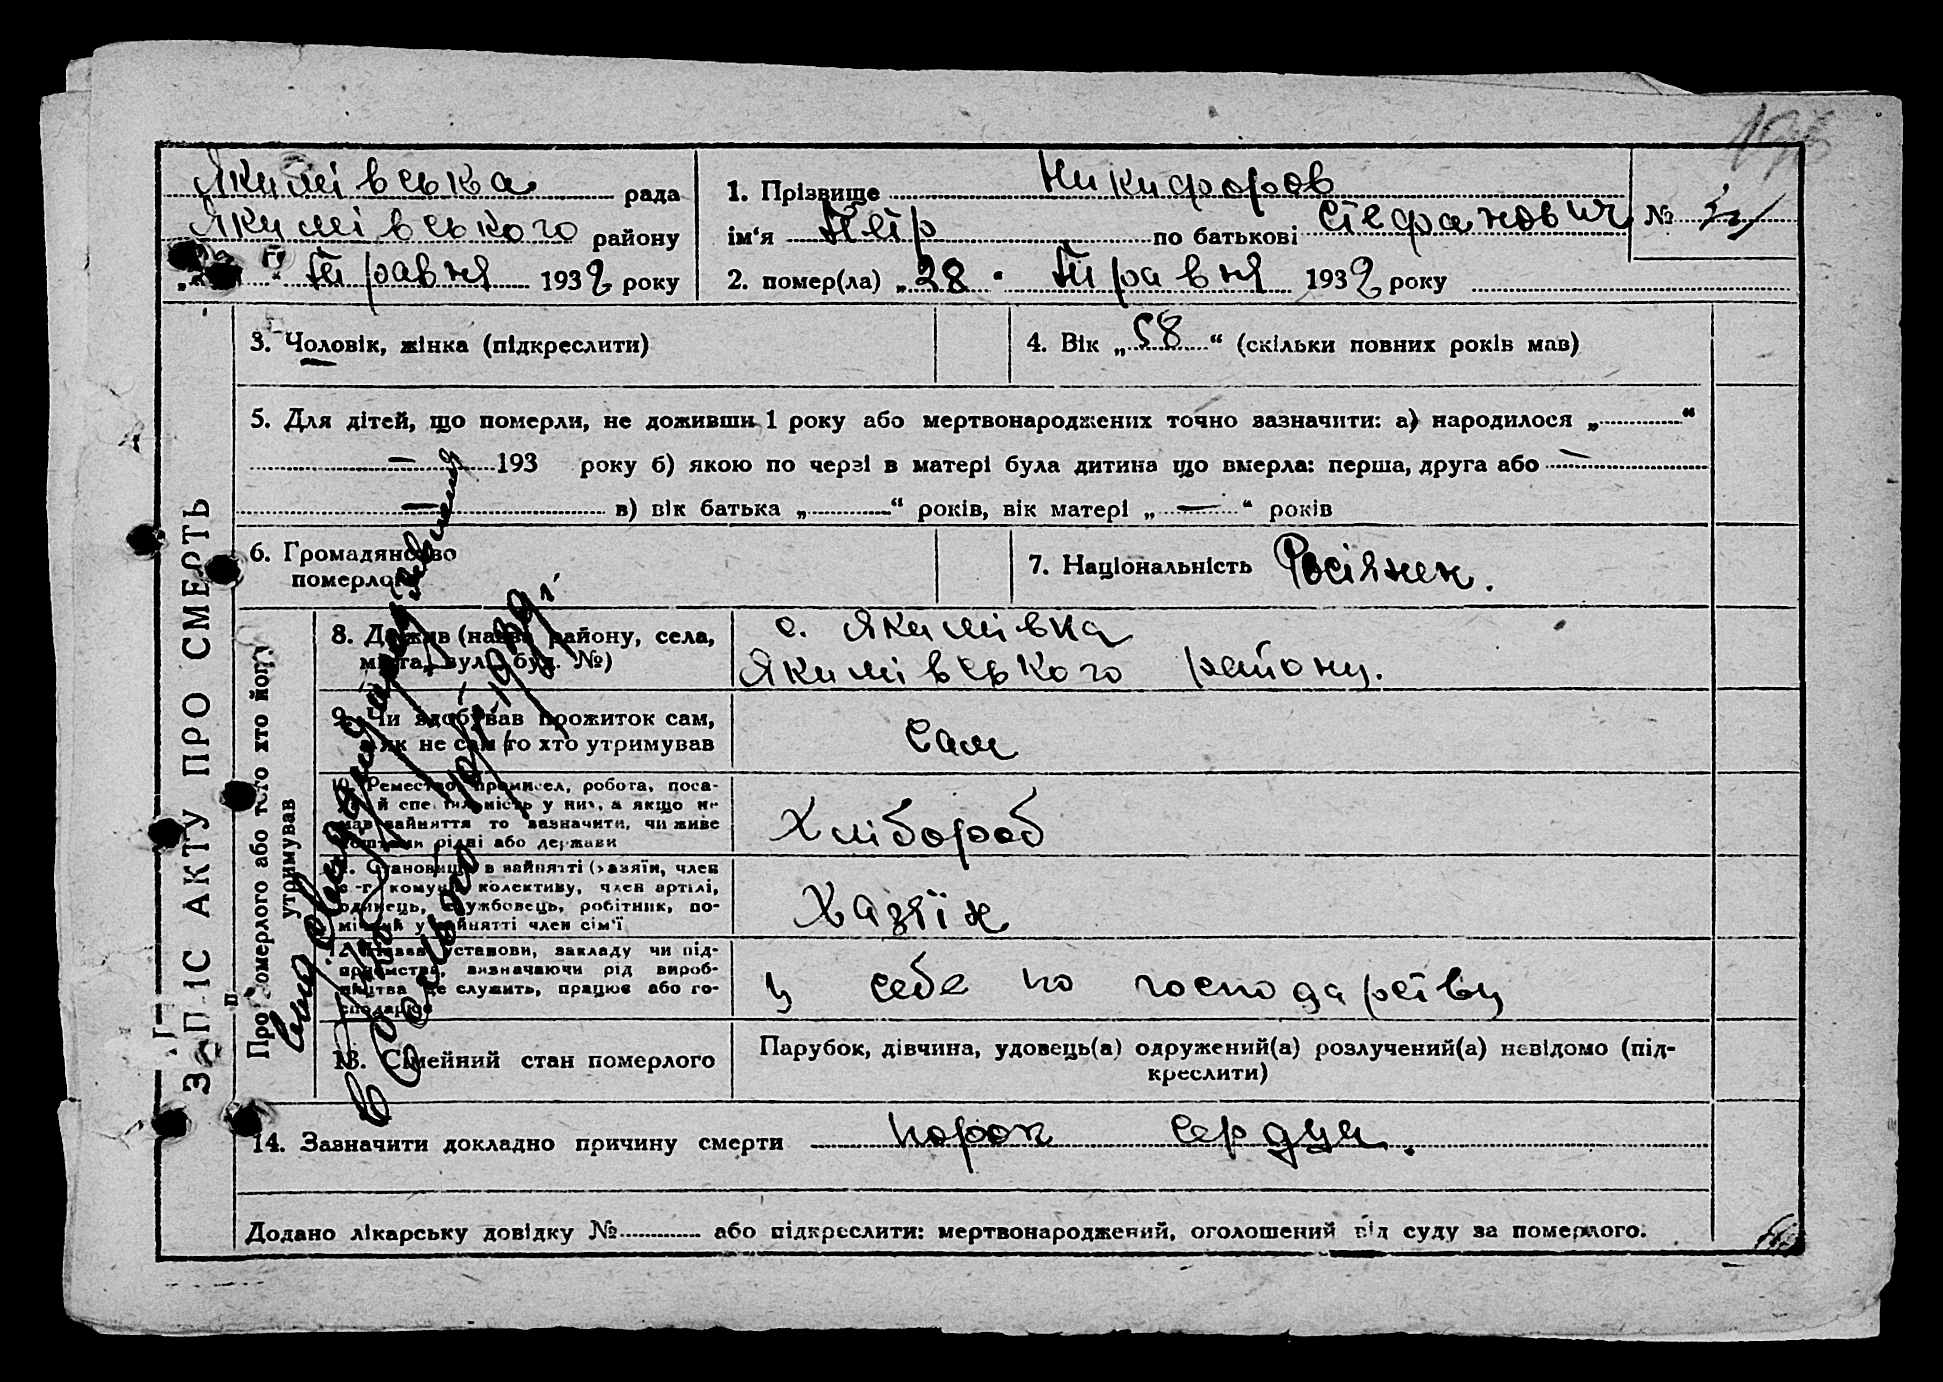 Якимівська рада
Якимівського району
„ “ травня 1932 року
1. Прізвище Никифоров
ім'я Петр по батькові Стефанович №
2. помер(ла) „28 „ травня 1932 року
3. Чоловік, жінка (підкреслити)
4. Вік „58“ (скільки повних років мав)
5. Для дітей, що померли, не доживши 1 року або мертвонароджених точно зазначити: а) народилося „ “
– 193 року б) якою по черзі в матері була дитина що вмерла: перша, друга або –
– в) вік батька „ “ років, вік матері „ – “ років
6. Громадянство
померлого
7. Національність Росіянен.
ЗАПИС АКТУ ПРО СМЕРТЬ
Про померлого або того хто його
утримував
8. Де жив (назва району, села,
міста, вул. буд. №)
с. Якимівка
Якимівського району.
9. Чи здобував прожиток сам,
а як не сам то хто утримував
Сам
10. Ремество, промисел, робота, поса-
да й спеціяльність у них, а якщо не
мав зайняття то зазначити, чи живе
коштами рідні або держави
Хлібороб
11. Становище в зайнятті (хазяїн, член
с.-г. комуни колективу, член артілі,
одинець, службовець, робітник, по-
мічний у зайнятті член сім'ї
Хазяїн
12. Назва установи, закладу чи під-
приємства, визначаючи рід вироб-
ництва де служить, працює або го-
сподарює
у себе по господарству
13. Сімейний стан померлого
Парубок, дівчина, удовець(а) одружений(а) розлучений(а) невідомо (під-
креслити)
14. Зазначити докладно причину смерти порок сердци.
Додано лікарську довідку № або підкреслити: мертвонароджений, оголошений від суду за померлого.